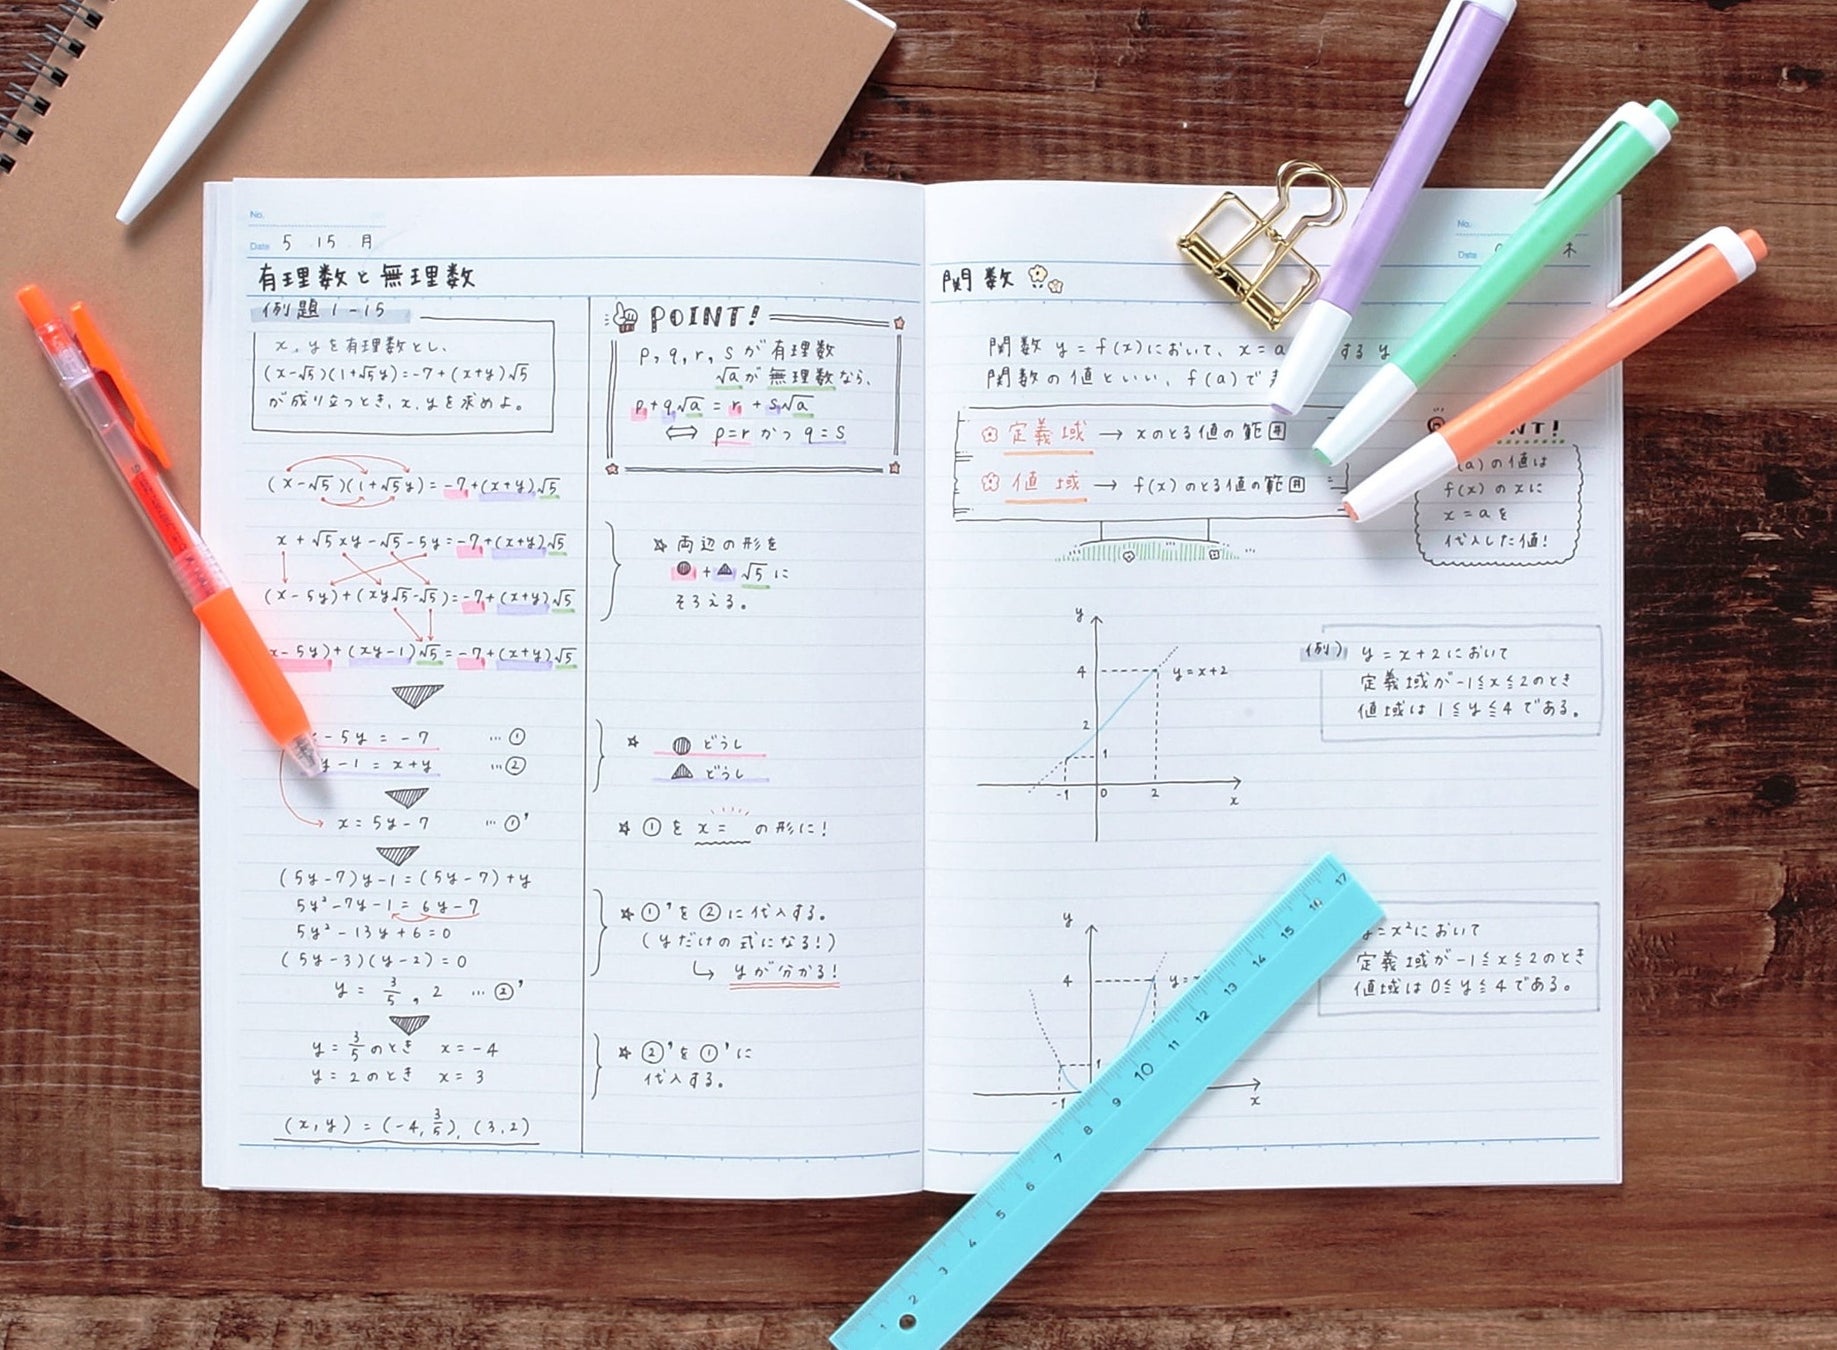 No.
Date 5 15 月
有理数と無理数
例題 1-15
x, yを有理数とし、
(x-√5)(1+√5y)=-7+(x+y)√5
が成り立つとき、x, yを求めよ。
(x-√5)(1+√5y)=-7+(x+y)√5
x+√5xy-√5-5y=-7+(x+y)√5
(x-5y)+(xy√5-√5)=-7+(x+y)√5
x-5y)+(xy-1)√5=-7+(x+y)√5
-5y=-7 …①
y-1=x+y …②
x=5y-7 …①'
(5y-7)y-1=(5y-7)+y
5y²-7y-1=6y-7
5y²-13y+6=0
(5y-3)(y-2)=0
y=3/5, 2 …②'
y=3/5のとき x=-4
y=2のとき x=3
(x,y)=(-4,3/5),(3,2)
POINT!
p, q, r, sが有理数
√aが無理数なら、
p+q√a=r+s√a
⇔ p=rかつq=s
☆ 両辺の形を
●+▲√5に
そろえる。
☆ ●どうし
▲どうし
☆ ①をx= の形に!
☆ ①'を②に代入する。
(yだけの式になる!)
↳ yが分かる!
☆ ②'を①'に
代入する。
No.
Date 木
関数
関数y=f(x)において、x=a する y
関数の値といい、f(a)で
定義域 → xのとる値の範囲
値域 → f(x)のとる値の範囲
NT!
a)の値は
f(x)のxに
x=aを
代入した値!
y
4
y=x+2
2
1
-1 0 2
x
例) y=x+2において
定義域が-1≦x≦2のとき
値域は1≦y≦4である。
y
4
y=
1
-1
x
y=x²において
定義域が-1≦x≦2のとき
値域は0≦y≦4である。
1 2 3 4 5 6 7 8 9 10 11 12 13 14 15 16 17